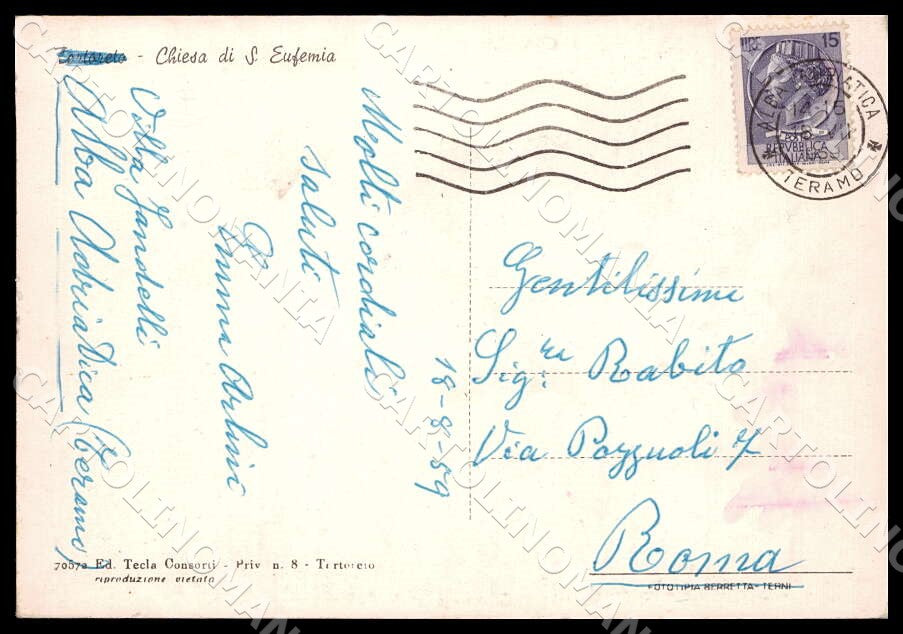 Tortoreto - Chiesa di S. Eufemia
LIRE 15
REPVBBLICA
ITALIANA
ALBA ADRIATICA
TERAMO
Molti cordiali
saluti
18-8-59
Villa
Alba Adriatica (Teramo)
Gentilissimi
Sig.ra Rabito
Via Pozzuoli 7
Roma
70572 Ed. Tecla Consorti - Priv. n. 8 - Tortoreto
riproduzione vietata
FOTOTIPIA BERRETTA - TERNI
CARTOLINOMANIA